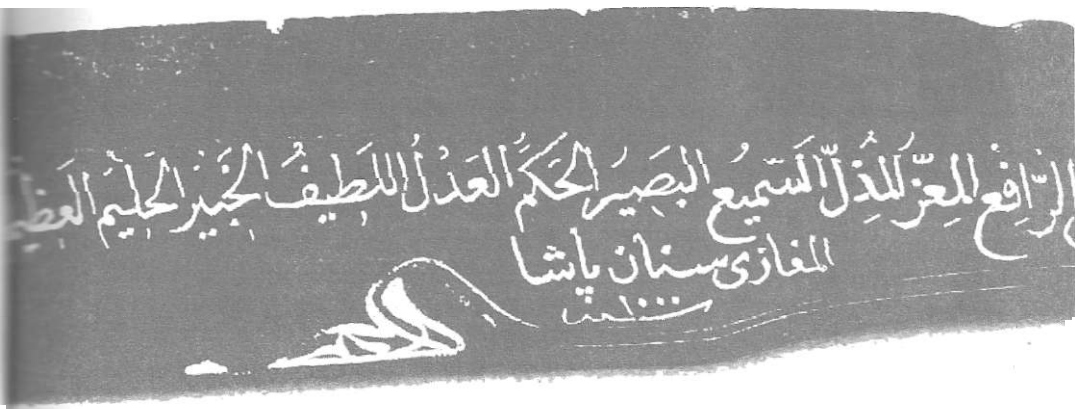 الرَّافِعُ المُعِزُّ المُذِلُّ السَّمِيعُ البَصِيرُ الحَكَمُ العَدْلُ اللَطِيفُ الخَبِيرُ الحَلِيمُ
الغازى سنان پاشا